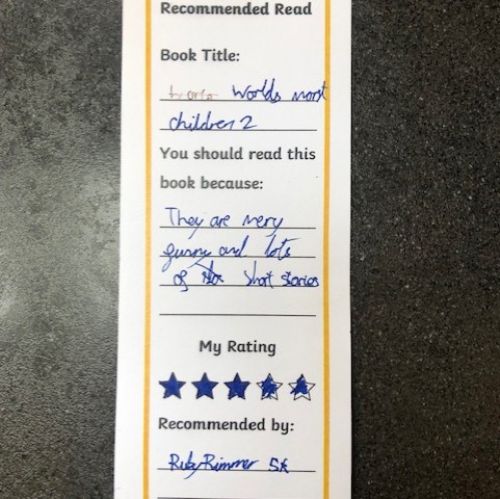 Recommended Read
Book Title:
Worlds most
children 2
You should read this
book because:
They are very
funny and lots
of short stories
My Rating
Recommended by:
Ruby Rimmer 5K